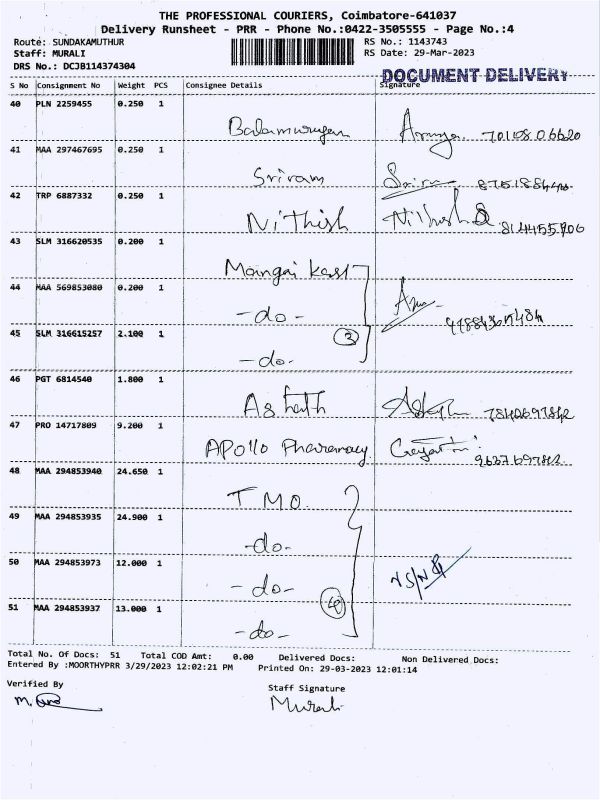 THE PROFESSIONAL COURIERS, Coimbatore-641037
Delivery Runsheet - PRR - Phone No.:0422-3505555 - Page No.:4
Route: SUNDAKAMUTHUR RS No.: 1143743
Staff: MURALI RS Date: 29-Mar-2023
DRS No.: DCJB114374304
DOCUMENT DELIVERY
S No Consignment No Weight PCS Consignee Details Signature
40 PLN 2259455 0.250 1
Balamurugan
41 MAA 297467695 0.250 1
Sriram
42 TRP 6887332 0.250 1
Nithish
43 SLM 316620535 0.200 1
Mangai
44 MAA 569853080 0.200 1
-do-
45 SLM 316615257 2.100 1
3
-do-
46 PGT 6814540 1.800 1
47 PRO 14717809 9.200 1
Apollo Pharamacy
48 MAA 294853940 24.650 1
TMO
49 MAA 294853935 24.900 1
-do-
50 MAA 294853973 12.000 1
-do-
51 MAA 294853937 13.000 1
4
-do-
Total No. Of Docs: 51 Total COD Amt: 0.00 Delivered Docs: Non Delivered Docs:
Entered By :MOORTHYPRR 3/29/2023 12:02:21 PM Printed On: 29-03-2023 12:01:14
Verified By Staff Signature
Murali